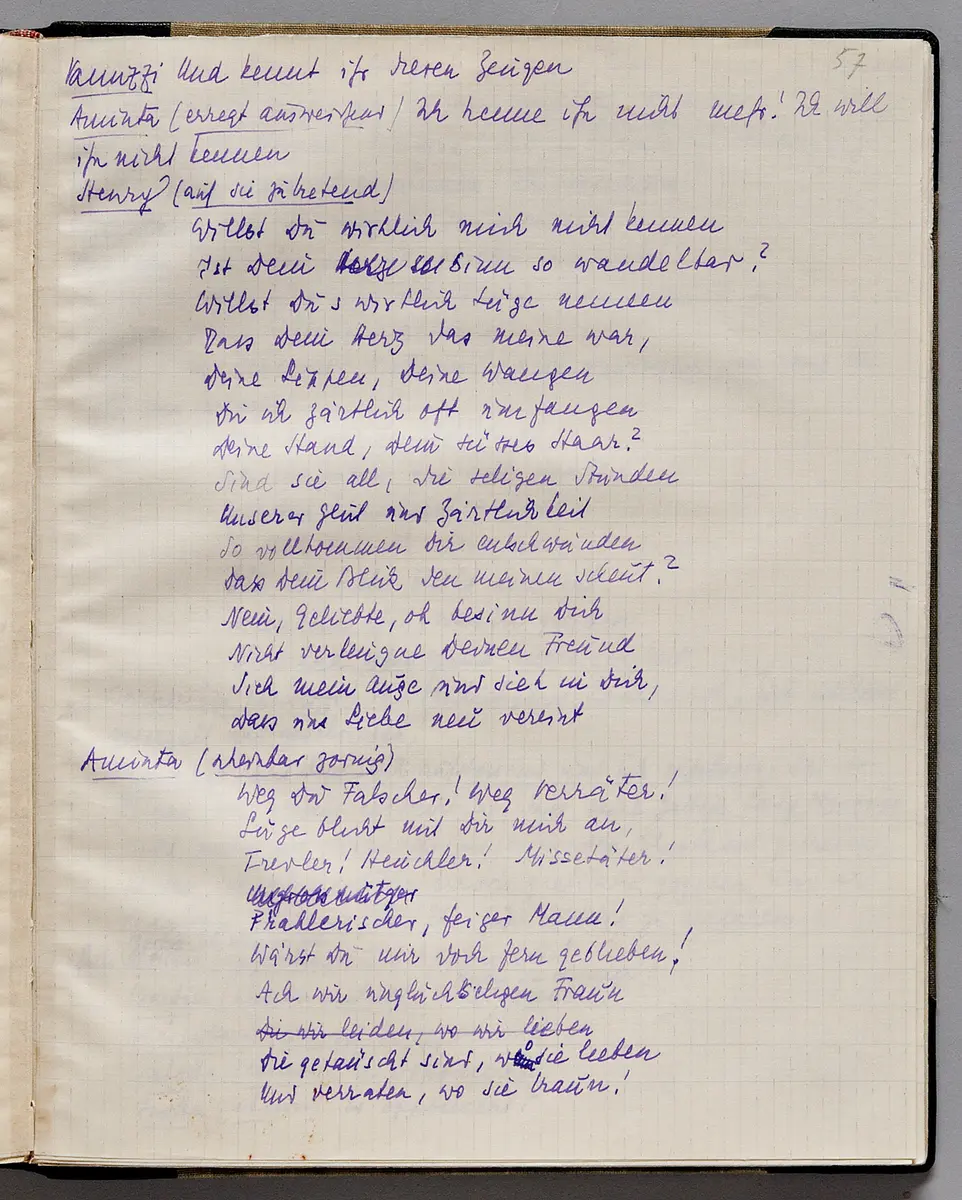 57
Vanuzzi Und kennt ihr diesen Zeugen
Aminta (erregt ausweichend) Ich kenne ihn nicht mehr! Ich will
ihn nicht kennen
Henry (auf sie zutretend)
Willst Du wirklich mich nicht kennen
Ist Dein Sinn so wandelbar?
Willst Du's wirklich Lüge nennen
Dass Dein Herz das meine war,
Deine Lippen, Deine Wangen
Die ich zärtlich oft umfangen
Deine Hand, Dein süsses Haar?
Sind sie all, die seligen Stunden
Unserer Glut und Zärtlichkeit
So vollkommen Dir entschwunden
Dass Dein Blick den meinen scheut?
Nein, Geliebte, oh besinn Dich
Nicht verleugne Deinen Freund
Sieh mein Auge und sieh in Dich,
Dass uns Liebe neu vereint
Aminta (scheinbar zornig)
Weg Du Falscher! Weg Verräter!
Lüge blickt mit Dir mich an,
Frevler! Heuchler! Missetäter!
Prahlerischer, feiger Mann!
Wärst Du mir doch fern geblieben!
Ach wir unglückselgen Fraun
Die wir leiden, wo wir lieben
Die getäuscht sind, wo sie lieben
Und verraten, wo sie traun!